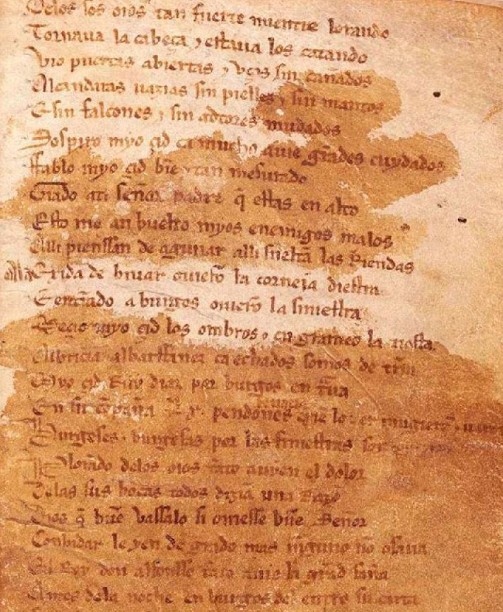 Delos sos oios tan fuerte mientre lorando
Tornaua la cabeça ⁊ estaua los catando
Vio puertas abiertas ⁊ vços sin cañados
Alcandaras uazias sin pielles ⁊ sin mantos
E sin falcones ⁊ sin adtores mudados
Sospiro myo çid ca mucho auie grãdes cuydados
Ffablo myo çid bie ⁊ tan mesurado
Grado ati señor padre q̃ estas en alto
Esto me an buelto myos enemigos malos
Alli pienssan de aguiiar alli sueltã las Riendas
Ala exida de biuar ouierõ la corneia diestra
E entrãdo a burgos ouierõ la siniestra
Meçio myo çid los ombros ⁊ en grameo la tiesta
Albricia albarffanez ca echados somos de tr̃ra
Myo çid Ruy diaz por burgos en trua
En su cõpaña .lx. pendones
Burgeses ⁊ burgesas por las finiestras
Plorando delos oios tãto auyen el dolor
Delas sus bocas todos dizian una Razõ
Dios q̃ buẽ vassalo si ouiesse buẽ Señor
Conbidar le yen de grado mas ninguno nõ osaua
El Rey don alfonsso tãto auie la grãd saña
Antes dela noche en burgos del entro su carta